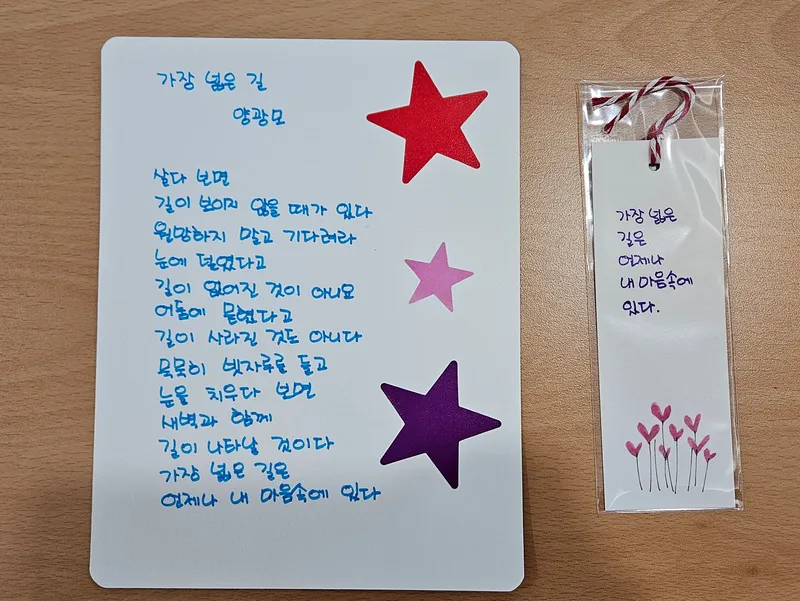 가장 넓은 길
양광모
살다 보면
길이 보이지 않을 때가 있다
원망하지 말고 기다려라
눈에 덮였다고
길이 없어진 것이 아니요
어둠에 묻혔다고
길이 사라진 것도 아니다
묵묵히 빗자루를 들고
눈을 치우다 보면
새벽과 함께
길이 나타날 것이다
가장 넓은 길은
언제나 내 마음속에 있다
가장 넓은
길은
언제나
내 마음속에
있다.